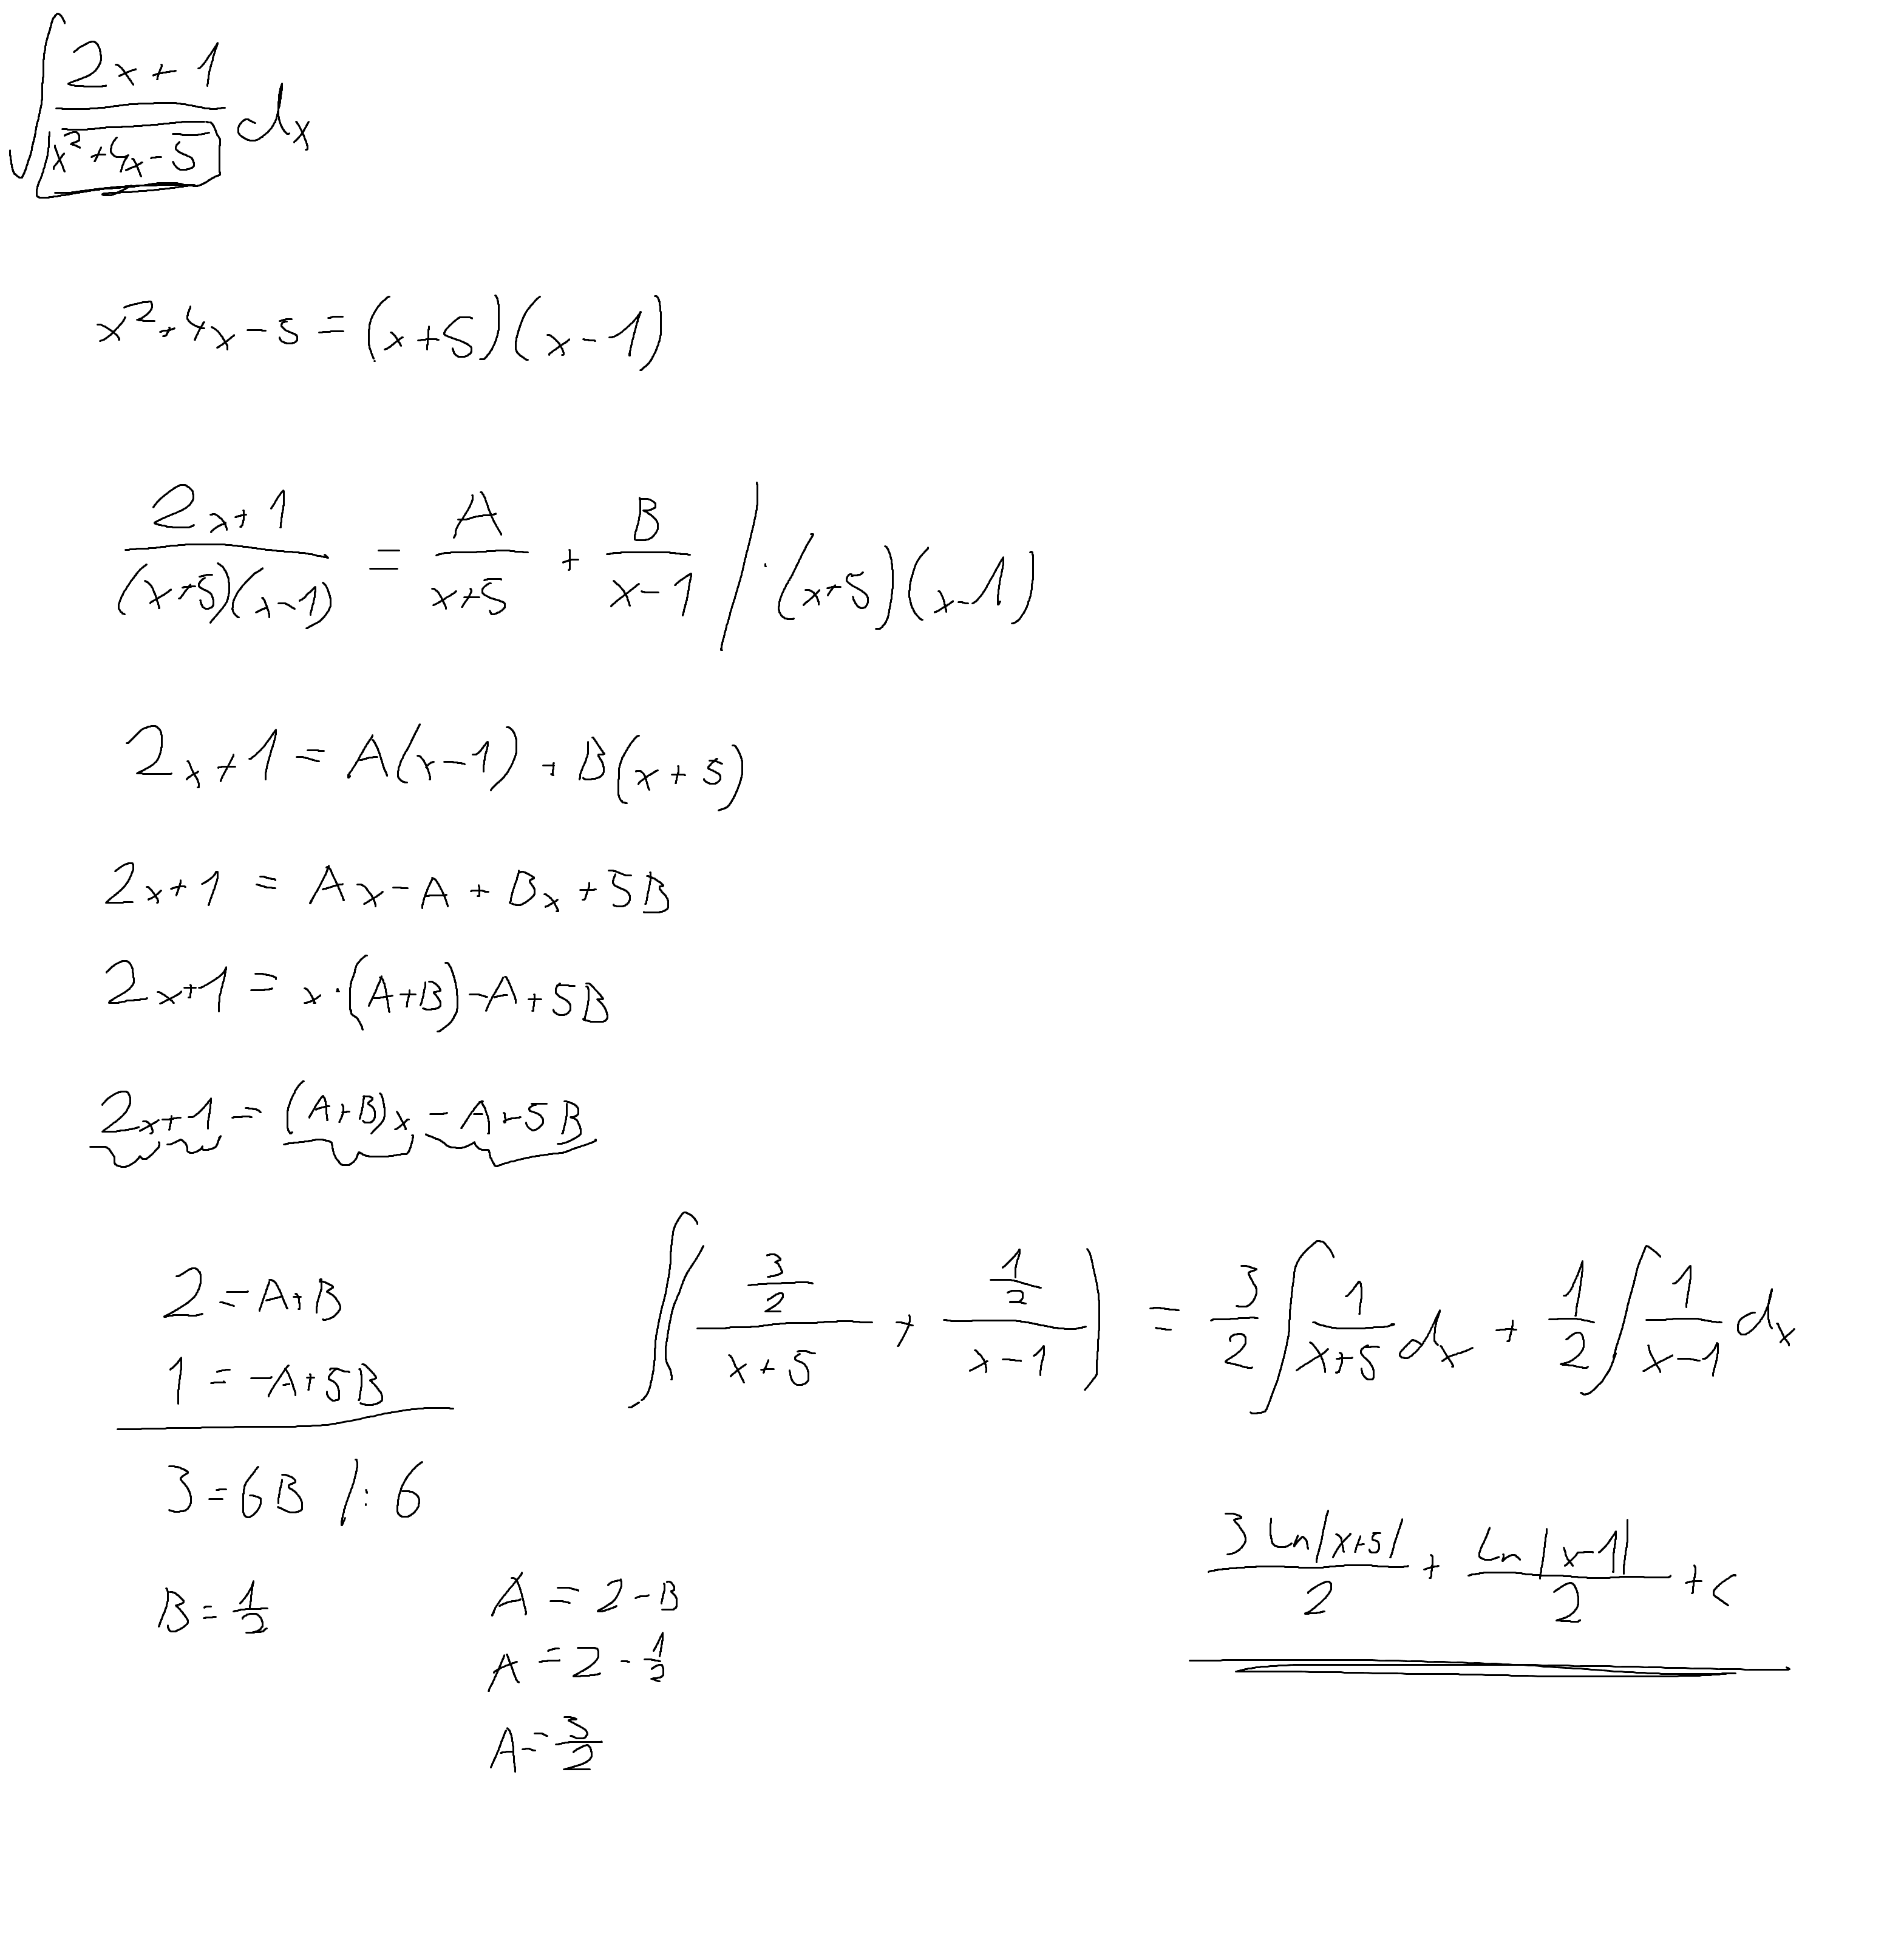 ∫ (2x+1)/(x²+4x-5) dx
x²+4x-5 = (x+5)(x-1)
(2x+1)/((x+5)(x-1)) = A/(x+5) + B/(x-1) / ·(x+5)(x-1)
2x+1 = A(x-1) + B(x+5)
2x+1 = Ax-A + Bx+5B
2x+1 = x·(A+B)-A+5B
2x+1 = (A+B)x -A+5B
2=A+B
1=-A+5B
3=6B /:6
B=1/2
A = 2-B
A=2-1/2
A=3/2
∫((3/2)/(x+5) + (1/2)/(x-1)) = 3/2 ∫ 1/(x+5) dx + 1/2 ∫ 1/(x-1) dx
3 ln|x+5|/2 + ln|x-1|/2 + c